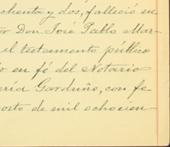 chenta y dos, falleció en
or Don José Pablo Mar-
el testamento público
o en fé del Notario
ría Garduño, con fe
osto de mil ochocien-